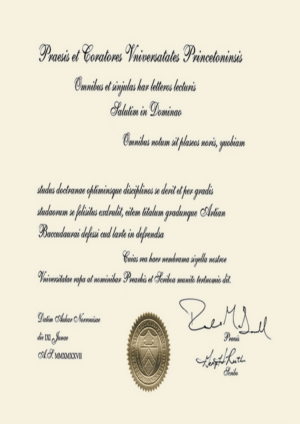 Praesis et Coratores Vniversatates Princetoninsis
Omnibus et sinjulas har letteros lecturis
Salutim in Dominao
Omnibus notum sit plaseos noris, quobiam
studus doctranae optiminsque disciplinos se derit et per gradis
studuorum se felisitus exdrulit, eitem titalum gradunque Artian
Baccaudaurai defissi cud larte in defrendisa
Cuius rea haec nembrama sigella nostrae
Universitatae rapa at nominibar Praeshis et Scriboa manito tertuomio dit.
Datim Aukar Norraniae
die III Junae
A.S. MMXMXXVII
Praesis
Scriba